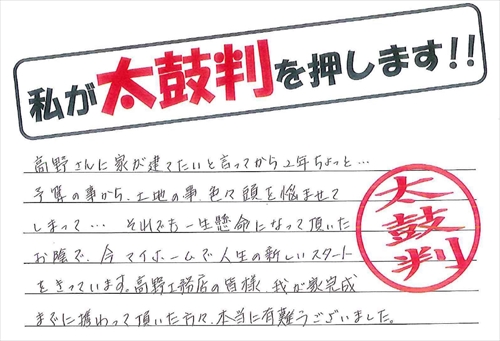 私が太鼓判を押します!!
高野さんに家が建てたいと言ってから2年ちょっと…
予算の事から、土地の事、色々頭を悩ませて
しまって… それでも一生懸命になって頂いた
お陰で、今マイホームで人生の新しいスタート
をきっています。高野工務店の皆様、我が家完成
までに携わって頂いた方々、本当に有難うございました。
太鼓判